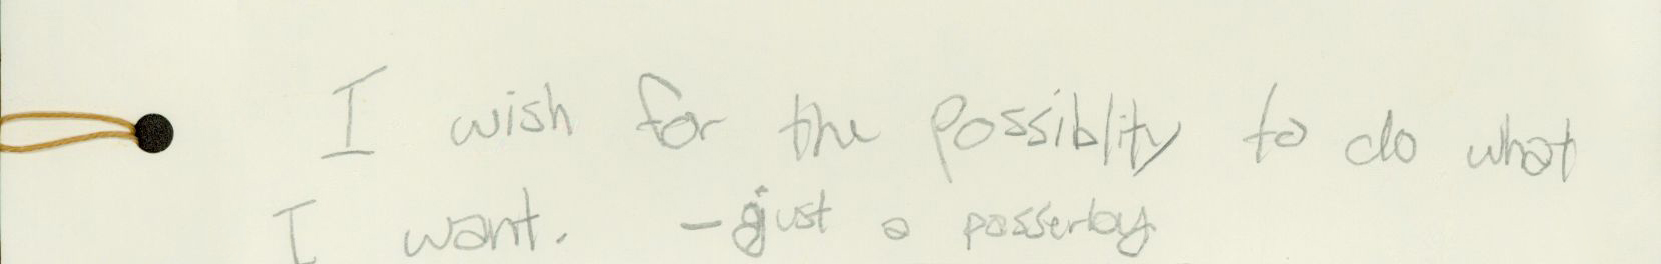 I wish for the possiblity to do what
I want. - just a passerby